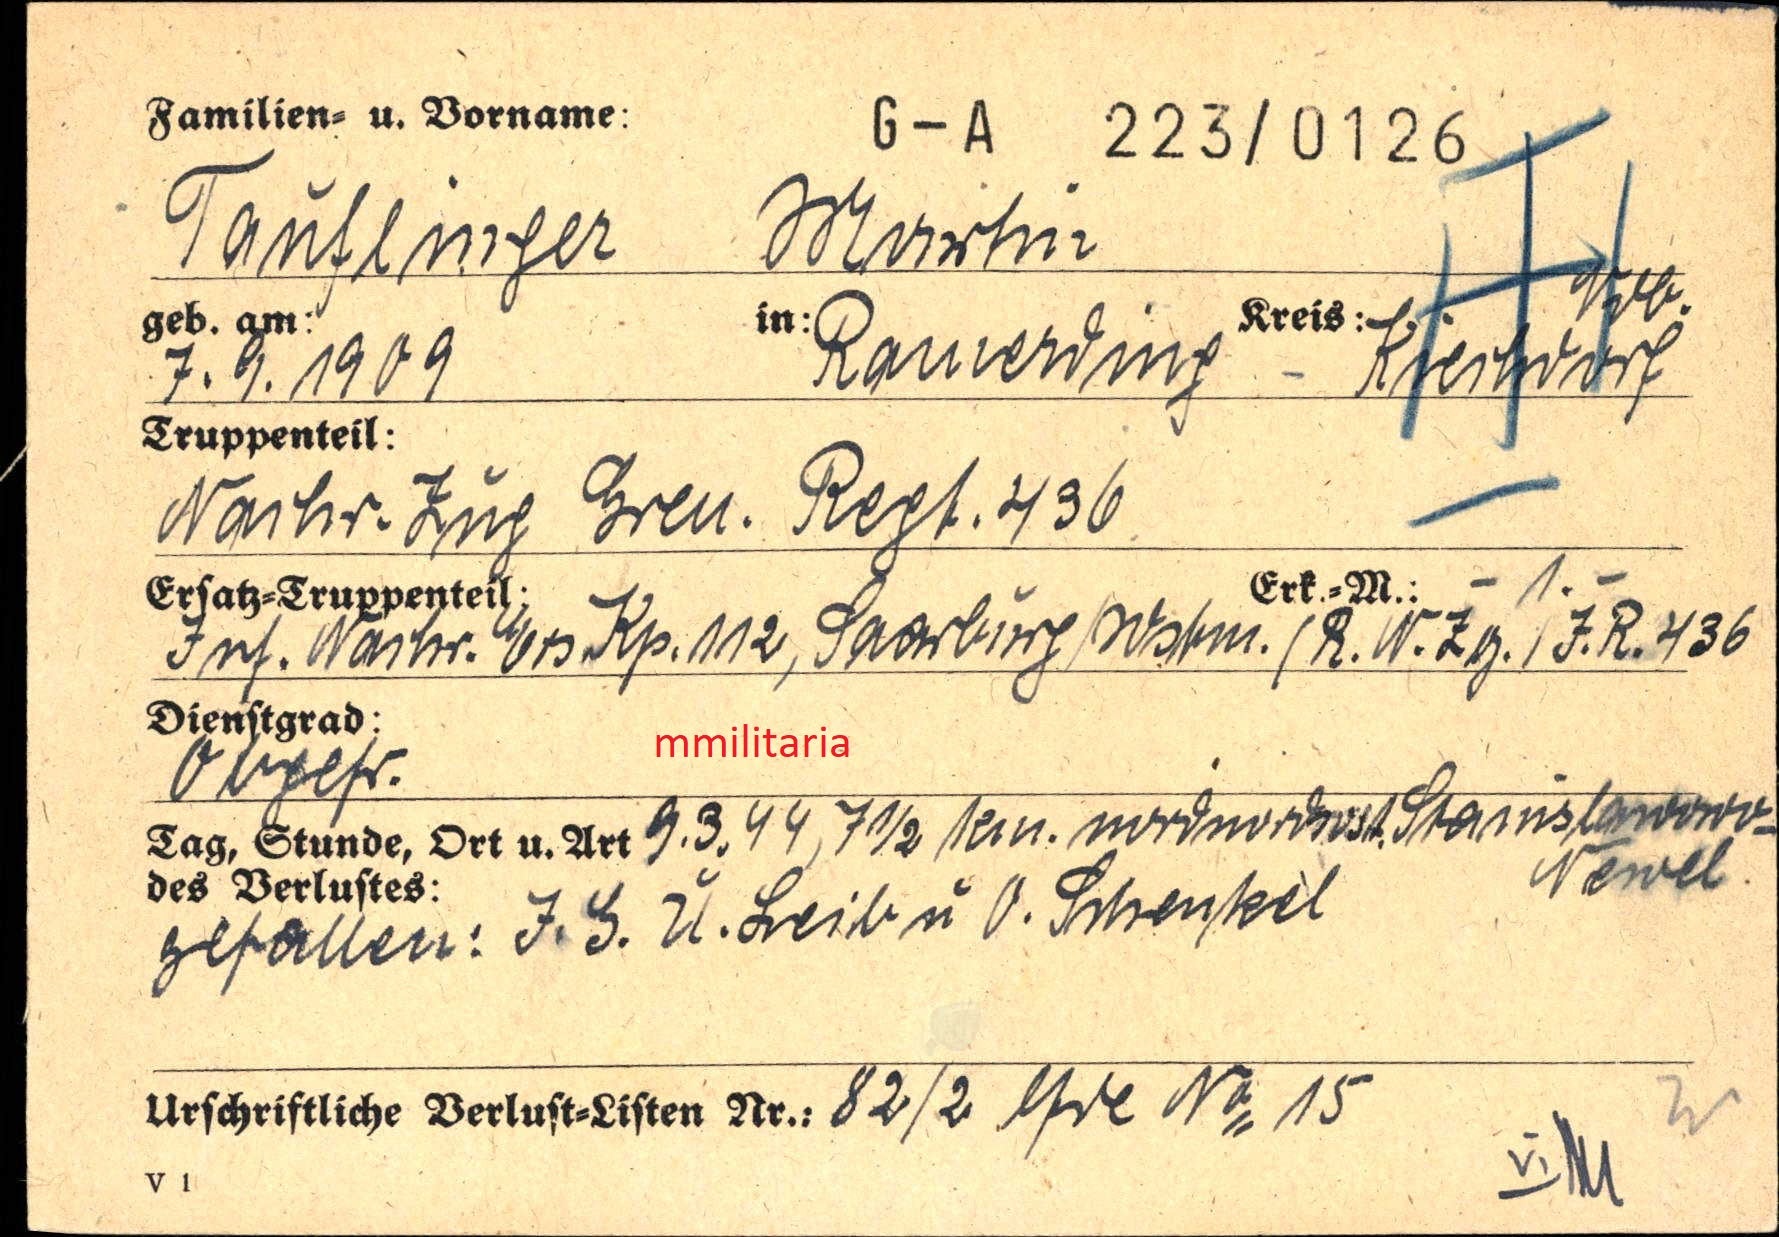 Familien- u. Vorname:
G-A 223/0126
Tauflinger Martin
geb. am:
in:
Kreis:
Ndb.
7.9.1909
Ramerding - Kirchdorf
Truppenteil:
Nachr. Zug Gren. Regt. 436
Ersatz-Truppenteil:
Erk.-M.: - 1. -
Inf. Nachr. Ers. Kp. 112, Saarburg/Westm. (R.N.Zg./J.R. 436
Dienstgrad:
Obgefr.
mmilitaria
Tag, Stunde, Ort u. Art 9.3.44, 7 1/2 km. nordnordwostl. Stanislawowo-
des Verlustes:
Newel
gefallen: J.G. U. Leib u O. Schenkel
Urschriftliche Verlust-Listen Nr.: 82/2 lfde No 15
V 1
VI